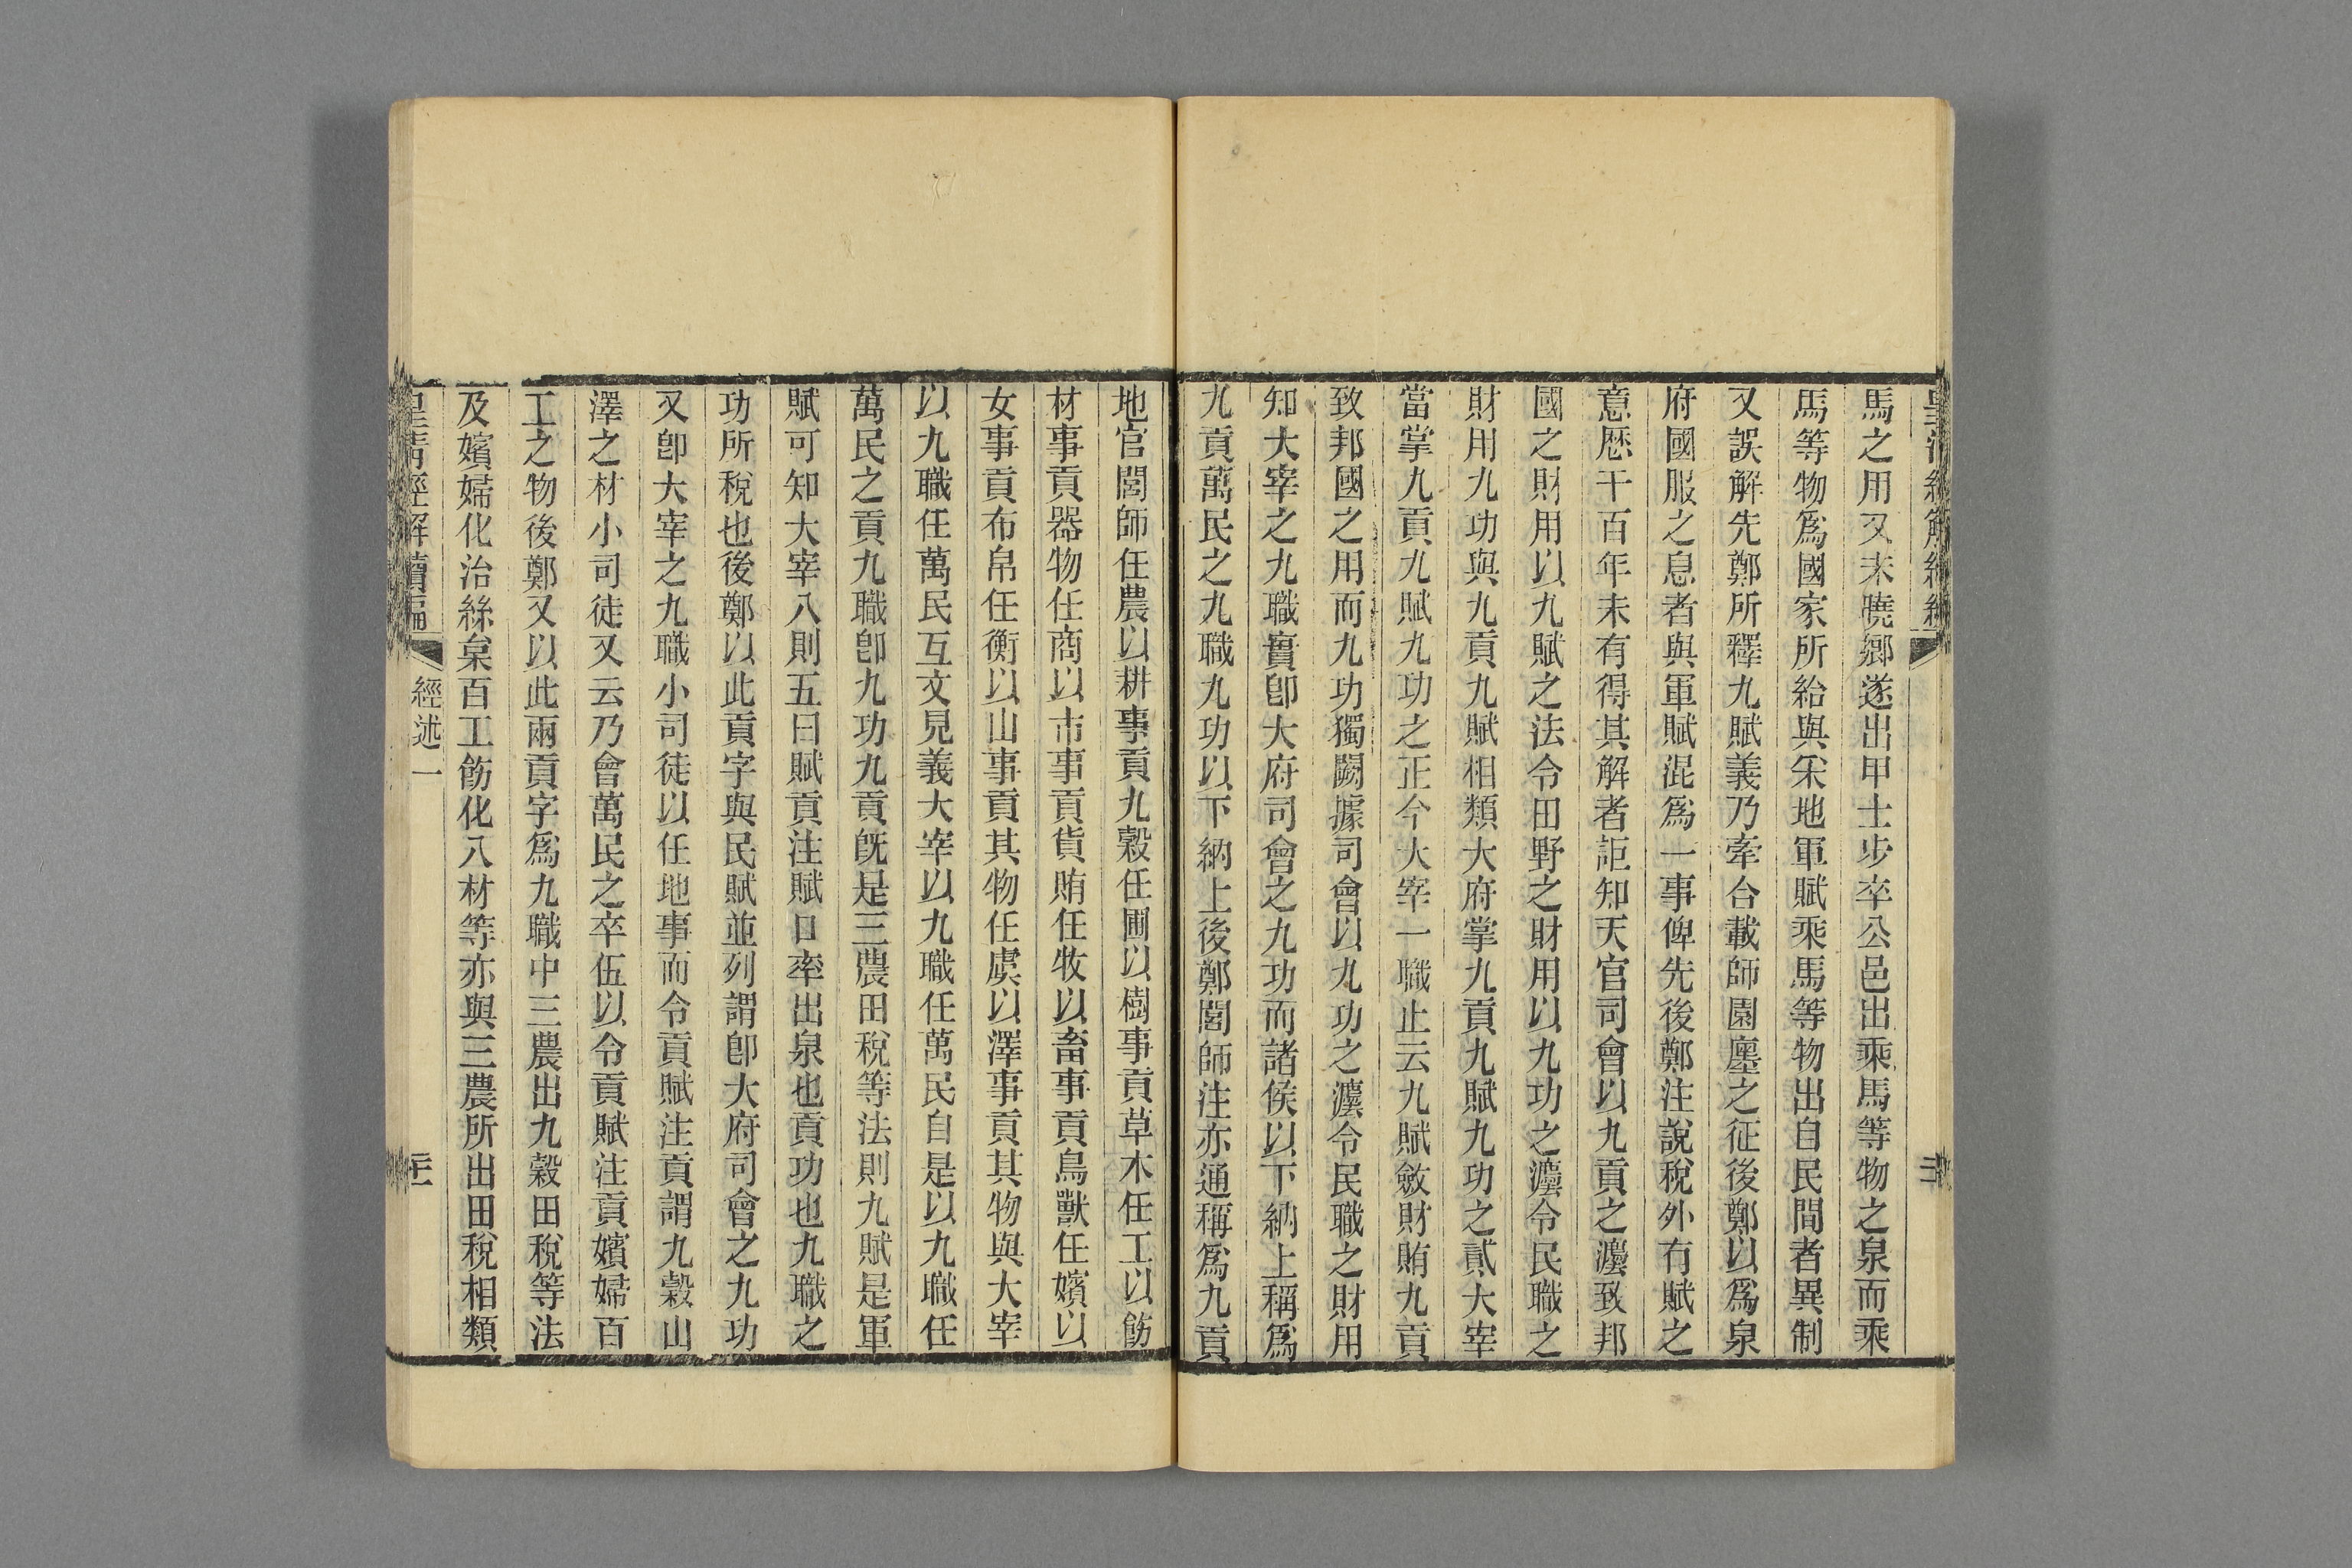 馬之用又未曉鄉遂出甲士步卒公邑出乘馬等物之泉而乘
馬等物爲國家所給與采地軍賦乘馬等物出自民間者異制
又誤解先鄭所釋九賦義乃牽合載師園廛之征後鄭以爲泉
府國服之息者與軍賦混爲一事俾先後鄭注說稅外有賦之
意歷千百年未有得其解者詎知天官司會以九貢之灋致邦
國之財用以九賦之法令田野之財用以九功之灋令民職之
財用九功與九貢九賦相類大府掌九貢九賦九功之貳大宰
當掌九貢九賦九功之正今大宰一職止云九賦斂財賄九貢
致邦國之用而九功獨闕據司會以九功之灋令民職之財用
知大宰之九職實卽大府司會之九功而諸侯以下納上稱爲
九貢萬民之九職九功以下納上後鄭閭師注亦通稱爲九貢
地官閭師任農以耕事貢九穀任圃以樹事貢草木任工以飭
材事貢器物任商以市事貢貨賄任牧以畜事貢鳥獸任嬪以
女事貢布帛任衡以山事貢其物任虞以澤事貢其物與大宰
以九職任萬民互文見義大宰以九職任萬民自是以九職任
萬民之貢九職卽九功九貢旣是三農田稅等法則九賦是軍
賦可知大宰八則五曰賦貢注賦口率出泉也貢功也九職之
功所稅也後鄭以此貢字與民賦並列謂卽大府司會之九功
又卽大宰之九職小司徒以任地事而令貢賦注貢謂九穀山
澤之材小司徒又云乃會萬民之卒伍以令貢賦注貢嬪婦百
工之物後鄭又以此兩貢字爲九職中三農出九穀田稅等法
及嬪婦化治絲枲百工飭化八材等亦與三農所出田稅相類
皇清經解續編
經述一